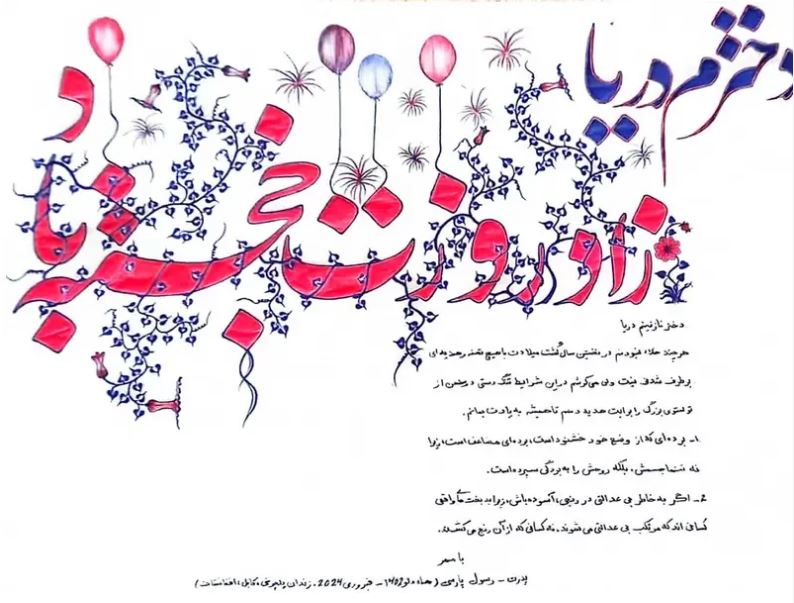 دخترم دریا
زادروزت خجسته باد
دختر نازنینم دریا
هرچند خلاء نبودنم در نخستین سال‌گشت میلادت با هیچ تحفه و هدیه‌ای
برطرف شدنی نیست ولی می‌کوشم در این شرایط تنگ‌دستی دو سخن از
تولستوی بزرگ را برایت هدیه دهم تا همیشه به یادت بماند.
۱- برده‌ای که از وضع خود خشنود است، برده‌ای مضاعف است، زیرا
نه تنها جسمش، بلکه روحش را به بردگی سپرده است.
۲- اگر به خاطر بی عدالتی در رنجی، آسوده باش، زیرا بدبخت‌های واقعی
کسانی اند که مرتکب بی عدالتی می شوند، نه کسانی که از آن رنج می‌کشند.
با مهر
پدرت - رسول پارسی ( دلو ۱۴۰۲ - فبروری 2024 - زندان پلچرخی، کابل، افغانستان )